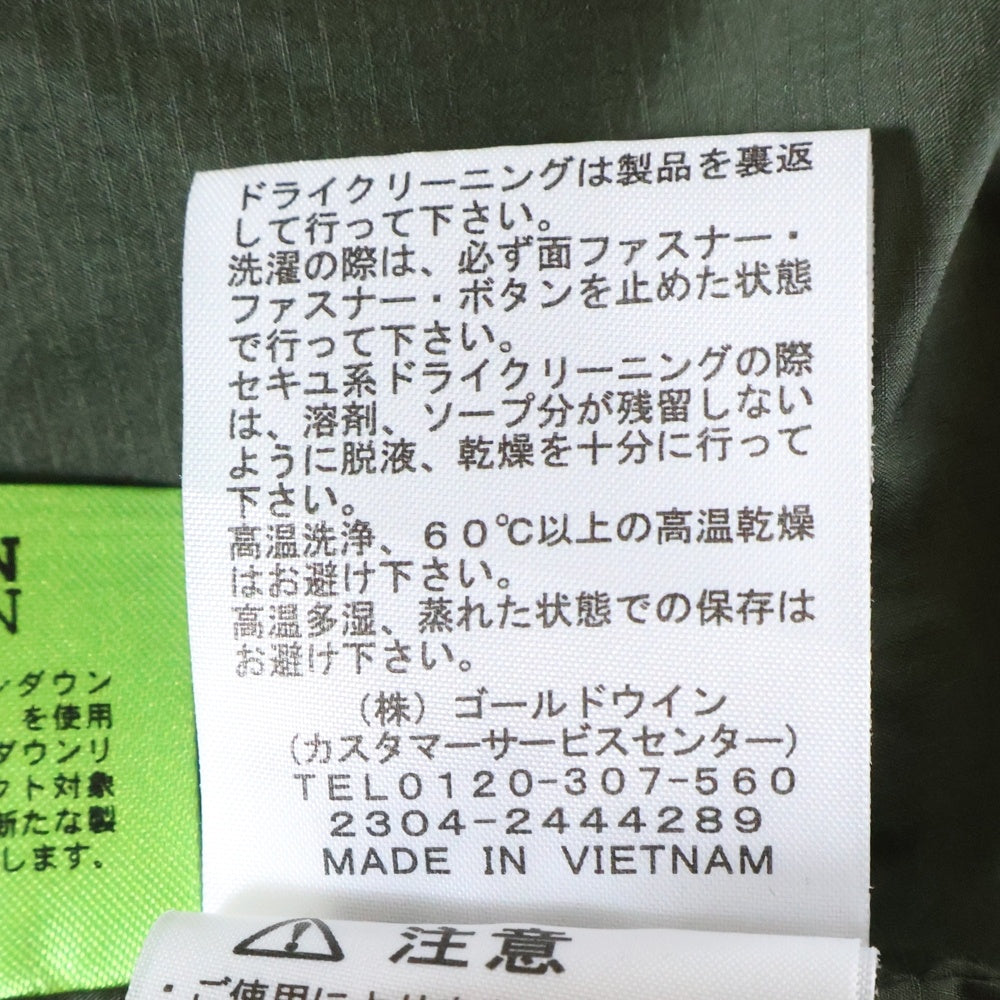 ドライクリーニングは製品を裏返
して行って下さい。
洗濯の際は、必ず面ファスナー・
ファスナー・ボタンを止めた状態
で行って下さい。
セキユ系ドライクリーニングの際
は、溶剤、ソープ分が残留しない
ように脱液、乾燥を十分に行って
下さい。
高温洗浄、60℃以上の高温乾燥
はお避け下さい。
高温多湿、蒸れた状態での保存は
お避け下さい。
(株)ゴールドウイン
(カスタマーサービスセンター)
TEL0120-307-560
2304-2444289
MADE IN VIETNAM
N
N
ダウン
を使用
ダウンリ
クト対象
新たな製
します。
注意
・ご使用により